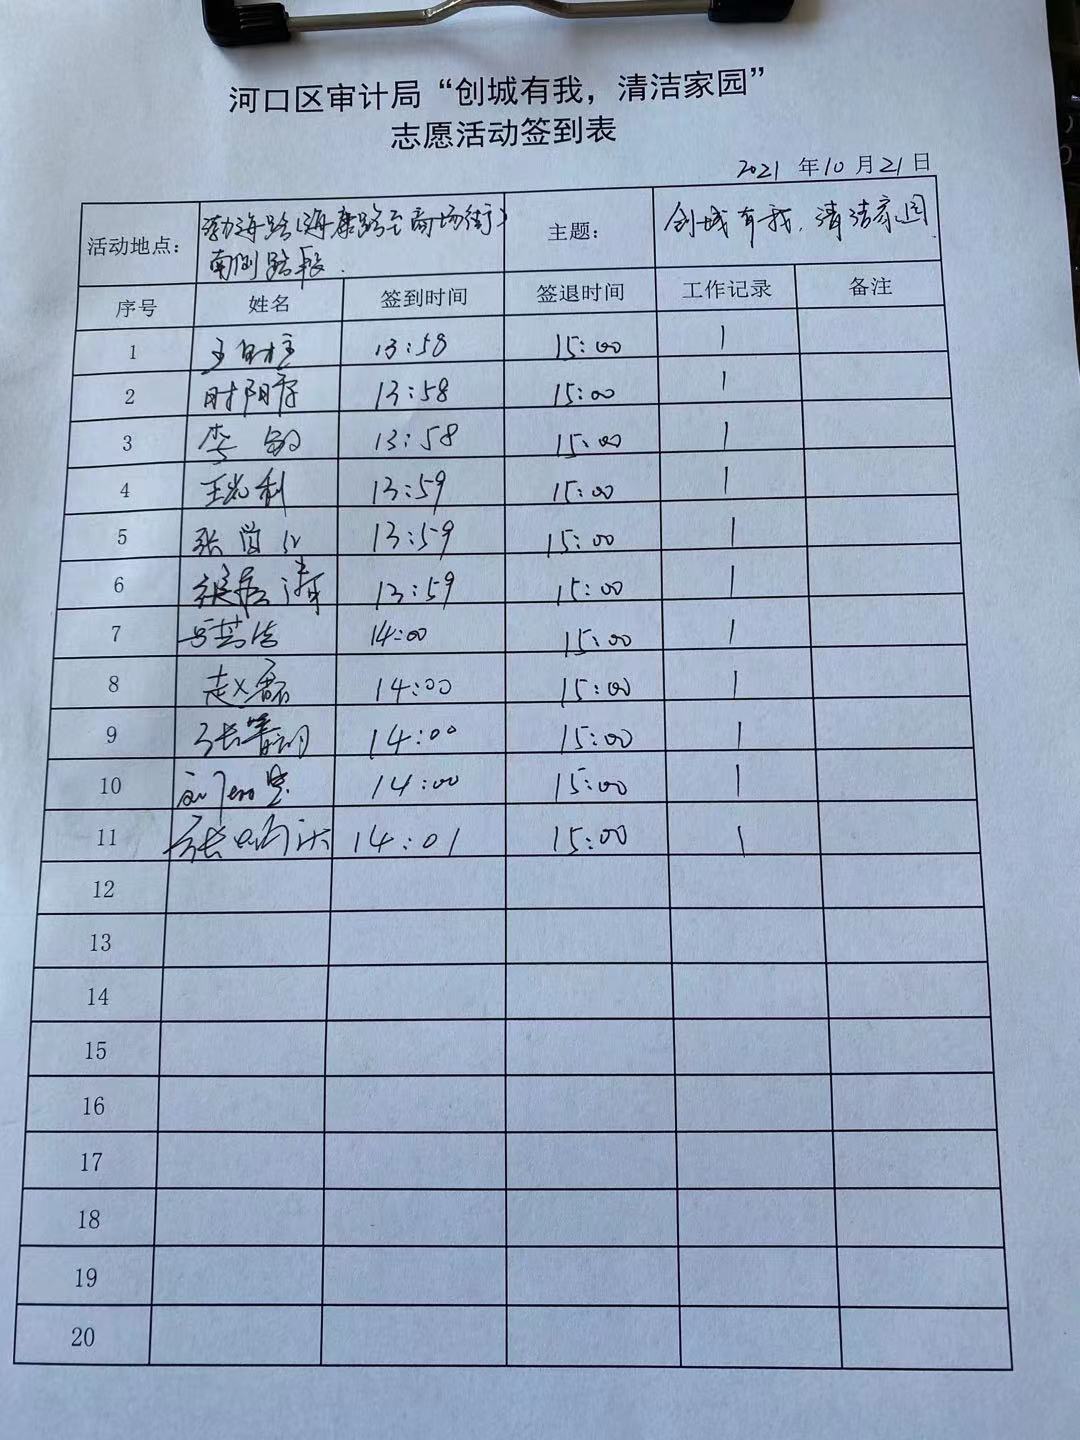 河口区审计局“创城有我，清洁家园”
志愿活动签到表
2021 年10月21日
活动地点： 渤海路(海康路至商场街) 南侧路段. 主题： 创城有我，清洁家园
序号 姓名 签到时间 签退时间 工作记录 备注
1 13:58 15:00 1
2 13:58 15:00 1
3 李敏 13:58 15:00 1
4 13:59 15:00 1
5 13:59 15:00 1
6 13:59 15:00 1
7 14:00 15:00 1
8 赵磊 14:00 15:00 1
9 14:00 15:00 1
10 14:00 15:00 1
11 14:01 15:00 1
12
13
14
15
16
17
18
19
20